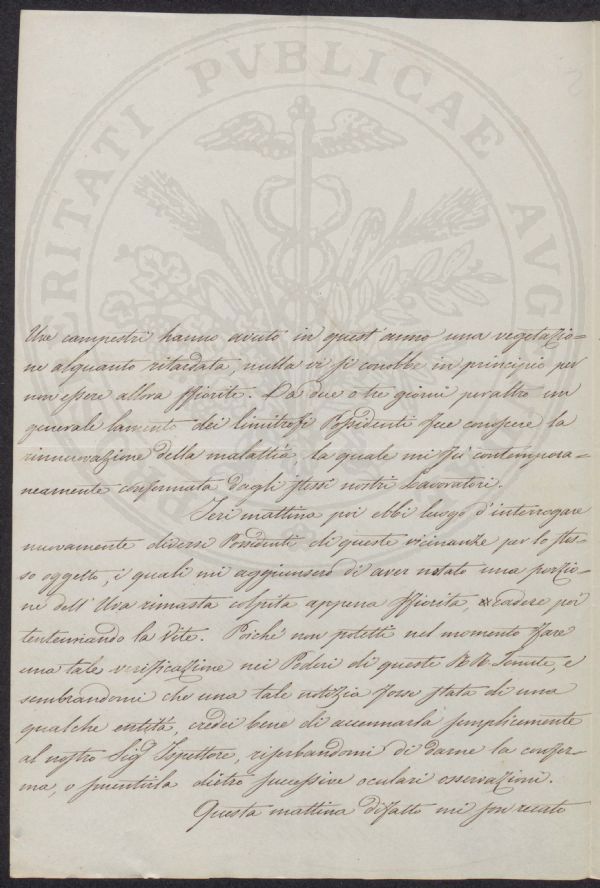 PROSPERITATI PVBLICAE AVG
Uve campestri hanno avuto in quest'anno una vegetazio=
ne alquanto ritardata, nulla vi si conobbe in principio per
non essere allora sfiorite. Da due o tre giorni peraltro un
generale lamento dei limitrofi Possidenti fece conoscere la
rinnuovazione della malattia, la quale mi fu contempora=
neamente confermata dagli stessi nostri Lavoratori.
Ieri mattina poi ebbi luogo d'interrogare
nuovamente diversi Possidenti di queste vicinanze per lo stes=
so oggetto, i quali mi aggiunsero di aver notato una porzio=
ne dell'Uva rimasta colpita appena sfiorita, cadere poi
tentennando la Vite. Poiché non potetti nel momento fare
una tale verificazione nei Poderi di queste RR. Tenute, e
sembrandomi che una tale notizia fosse stata di una
qualche entità, credei bene di accennarla semplicemente
al nostro Sig.r Ispettore, riserbandomi di darne la confer=
ma, o smentirla dietro successive oculari osservazioni.
Questa mattina difatto mi son recato